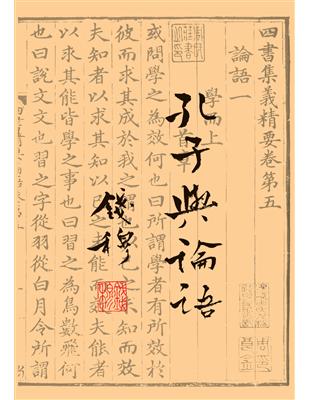 四書集義精要卷第五
論語一
學而上
首章
或問學之為效何也曰所謂學者有所效於
彼而求其成於我之謂也以己之未知而效
夫知者以求其知以己之未能而效夫能者
以求其能皆學之事也曰習之為鳥數飛何
也曰說文文也習之字從羽從白月令所謂
孔子與論語
錢穆